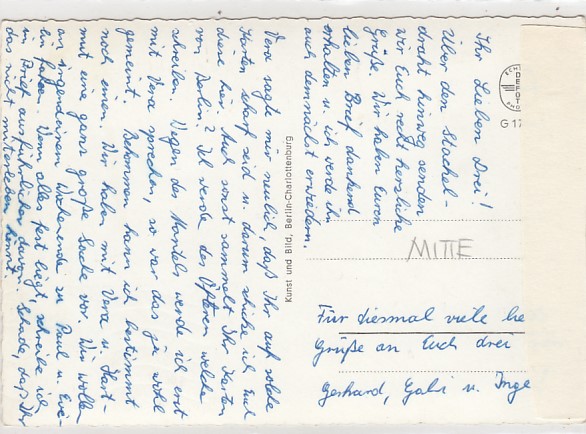 Ihr Lieben Drei!
Über den Stachel-
draht hinweg senden
wir Euch recht herzliche
Grüße. Wir haben Euren
lieben Brief dankend
erhalten u. ich werde ihn
auch demnächst erwiedern.
Vera sagte mir neulich, daß Ihr auf solche
Karten scharf seid u. darum schicke ich Euch
diese hier. Auch sonst sammelt Ihr Karten
von Berlin? Ich werde des Öfteren welche
schreiben. Wegen des Mantels, werde ich erst
mit Vera sprechen, so war das ja wohl
gemeint. Bekommen kann ich bestimmt
noch einen. Wir haben mit Vera u. Hart-
mut eine ganz große Sache vor. Wir wollen
an irgendeinem Wochenende zu Paul u. Eve-
lin fahren. Wenn alles fest liegt, schreibe ich
im Brief ausführlicher davon. Schade, daß Ihr
das nicht miterleben könnt.
Kunst und Bild, Berlin-Charlottenburg
G 17
MITTE
Für diesmal viele
Grüße an Euch drei
Gerhard, Gabi u. Inge